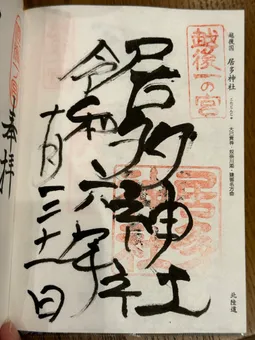 越後国 居多神社
北陸道
越後一の宮
居多神社
令和六年
十月三十一日
奉拝